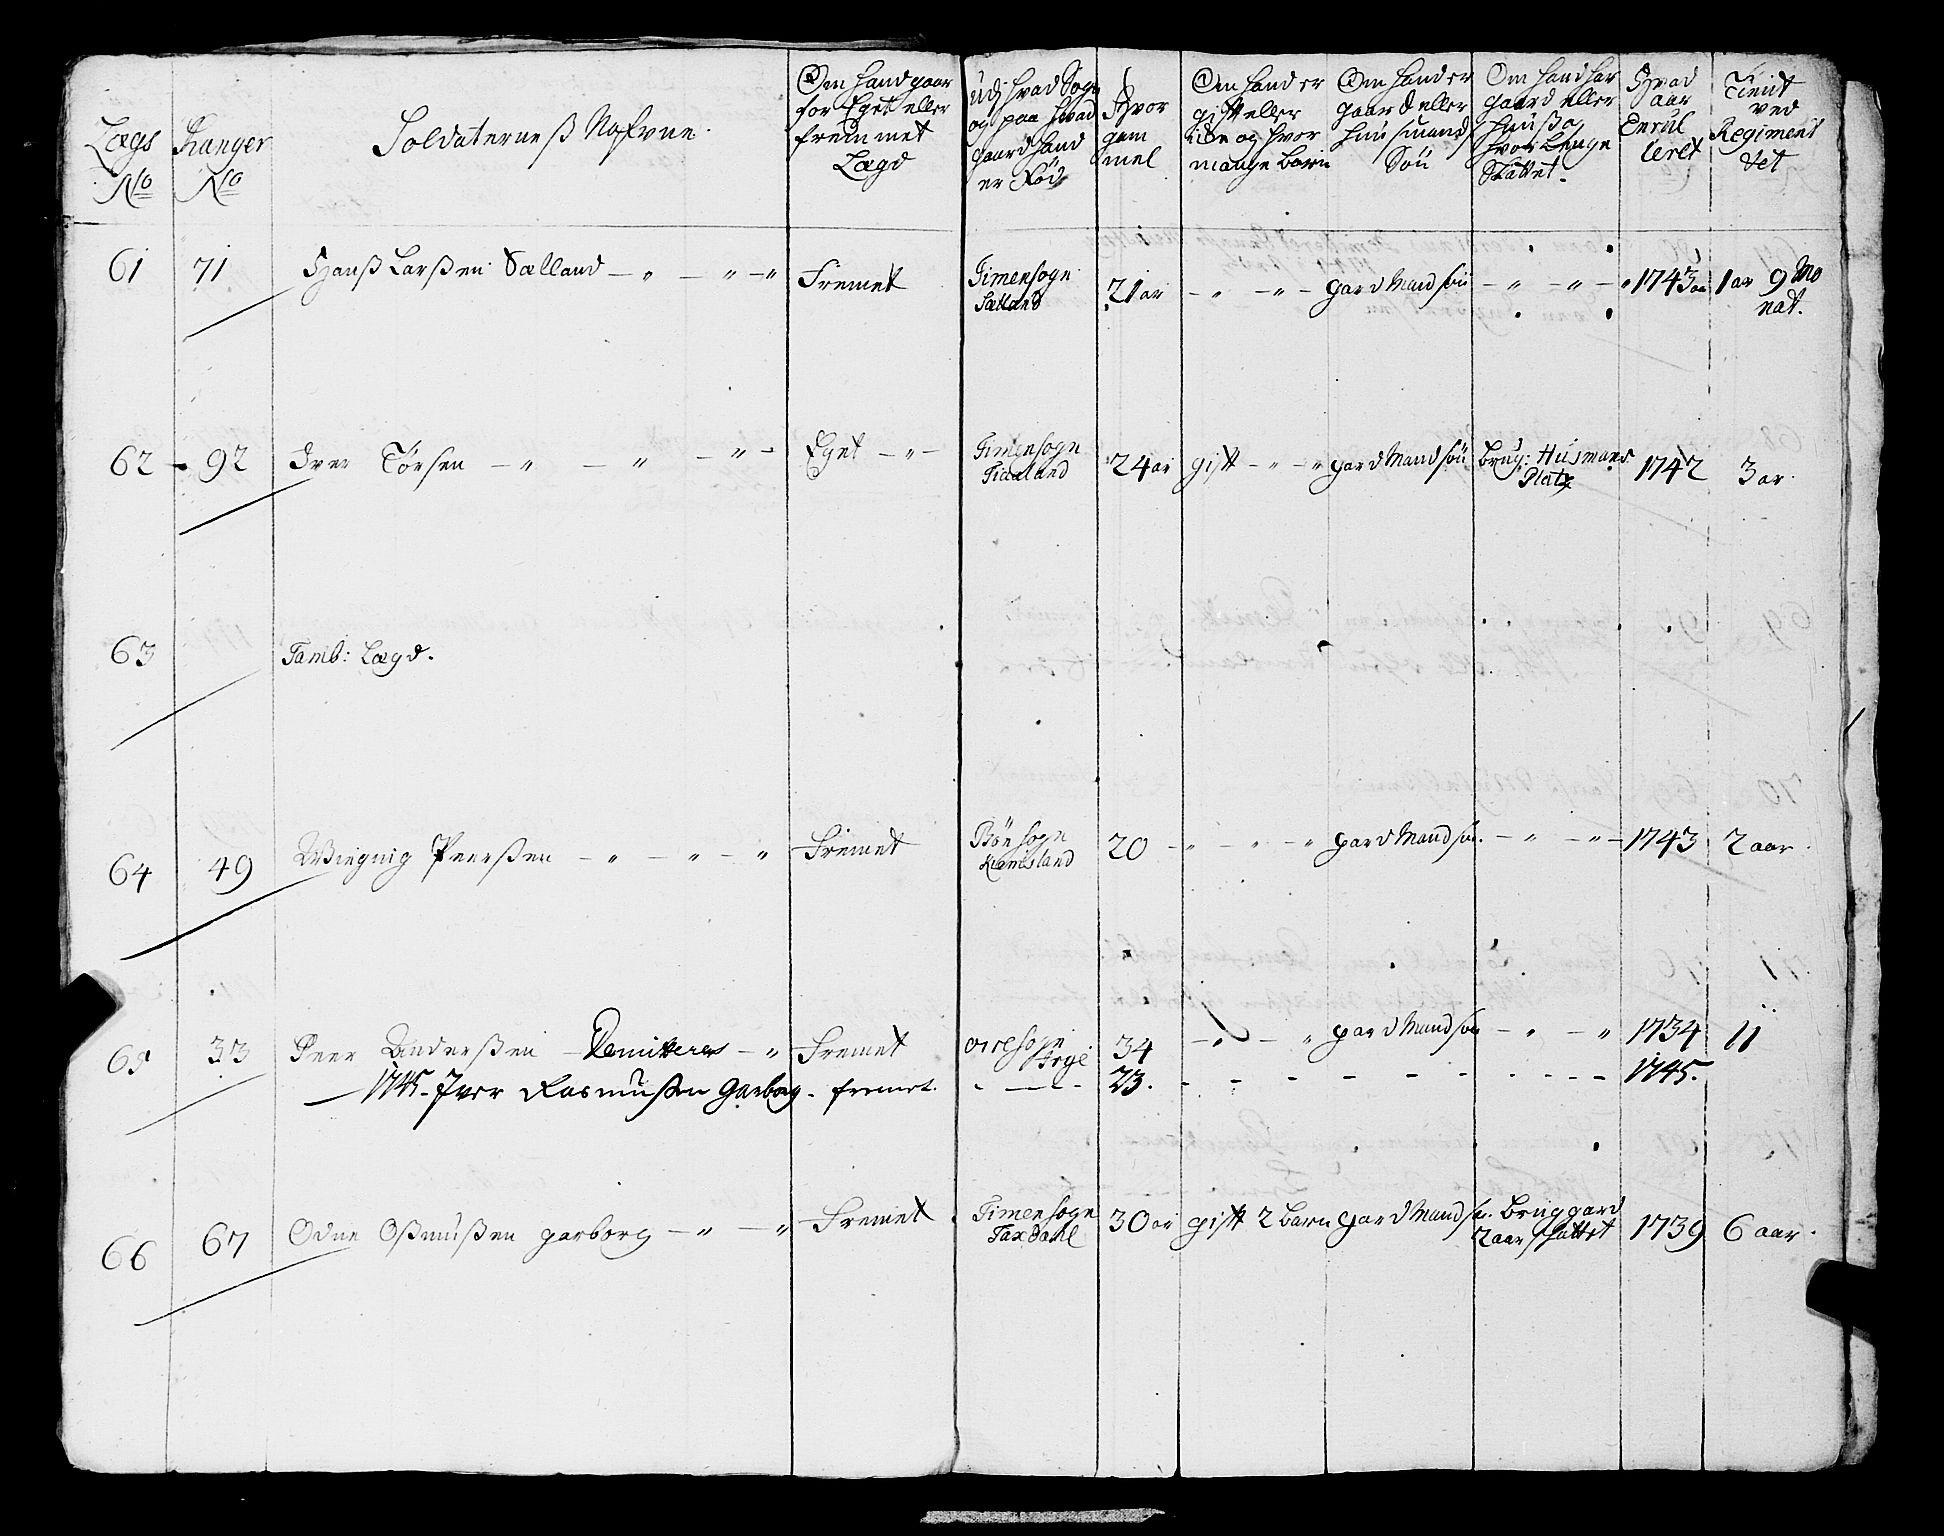 Lægs No
Ranger No
Soldaterneß Nafvne.
Om hand gaar for Eget eller fremmet Lægd
Udj hvad Sogn og paa hvad gaard hand er Fød
Hvor gam mel
Om hand er gift eller i De og hvor mange børn
Om hand er gaard eller huusmands Søn
Om hand har gaard eller huuß og hvor Lenge Skattet.
Hvad aar Enrul leret
Tient ved Regimen tet
61 71 Hanß Larßen Sælland – " – " – " Fremet Timensogn Sælland 21 ar – " – " – gard Mand søn – " – " – " 1743 1 ar 9 Mo nat.
62 – 92 Iver Tørsen – " – " – " – Eget – " – Timensogn Tiaaland 24 ar gift – " – " gard Mand søn brug: Husmans Platz 1742 3 ar.
63 Tamb: Lægd.
64 49 Peerßen – " – " – " Fremet Bøn sogn 20 – " – " – " gard Mand søn. – " – " – 1743 2 aar.
65 33 Peer Anderßen – Demitteres – " Fremet 34 – " – " gard Mand søn – " – " 1734 11
– 1745. Iver Rasmußen Garborg. fremet. – – – – 23. – – – – – – – – – – 1745.
66 67 Odne Oßmußen garborg – " – " Fremet. Timensogn Taxdahl 30 ar gift 2 barn gard Mand sn. brug gard 2 aar skattet 1739 6 aar.